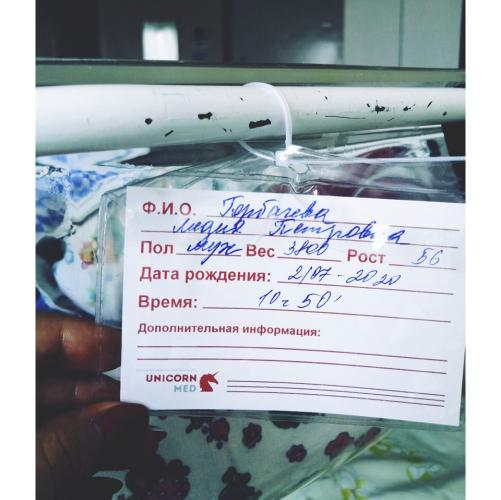 Ф.И.О. Горбачева
Лидия Петровна
Пол муж Вес 3800 Рост 56
Дата рождения: 2/07-2020
Время: 10ч 50'
Дополнительная информация:
UNICORN
MED